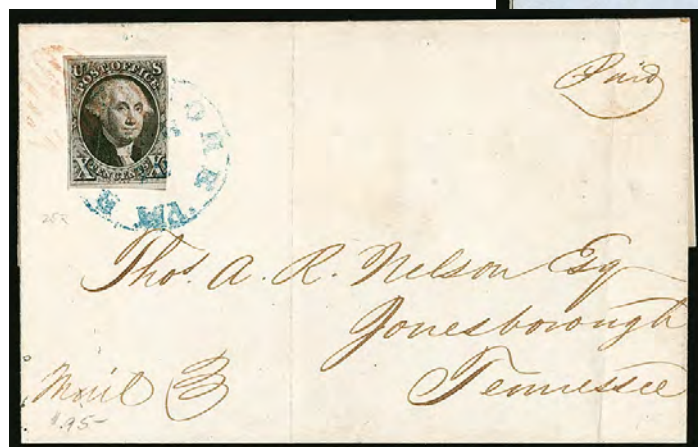 U S
POST OFFICE
X TEN CENTS X
Paid
252
Thos. A. R. Nelson Esq
Jonesborough
Tennessee
Mail
$95-